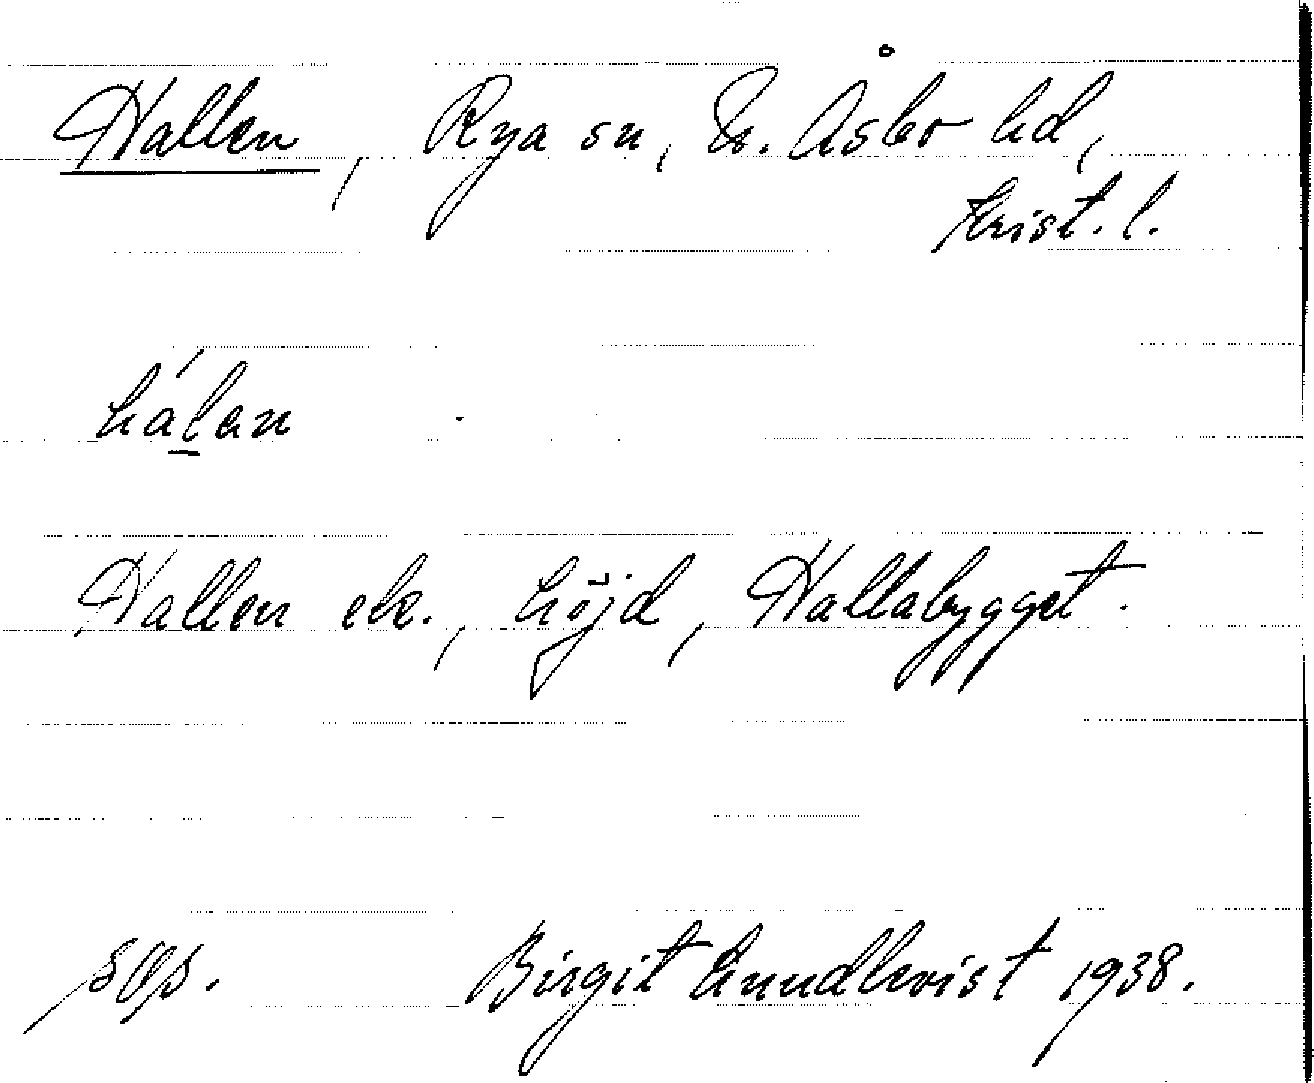 Hallen, Rya sn, N. Åsbo hd,
Krist. l.
hálan
Hallen ek., höjd, Hallabygget.
sep. Birgit Lundkvist 1938.